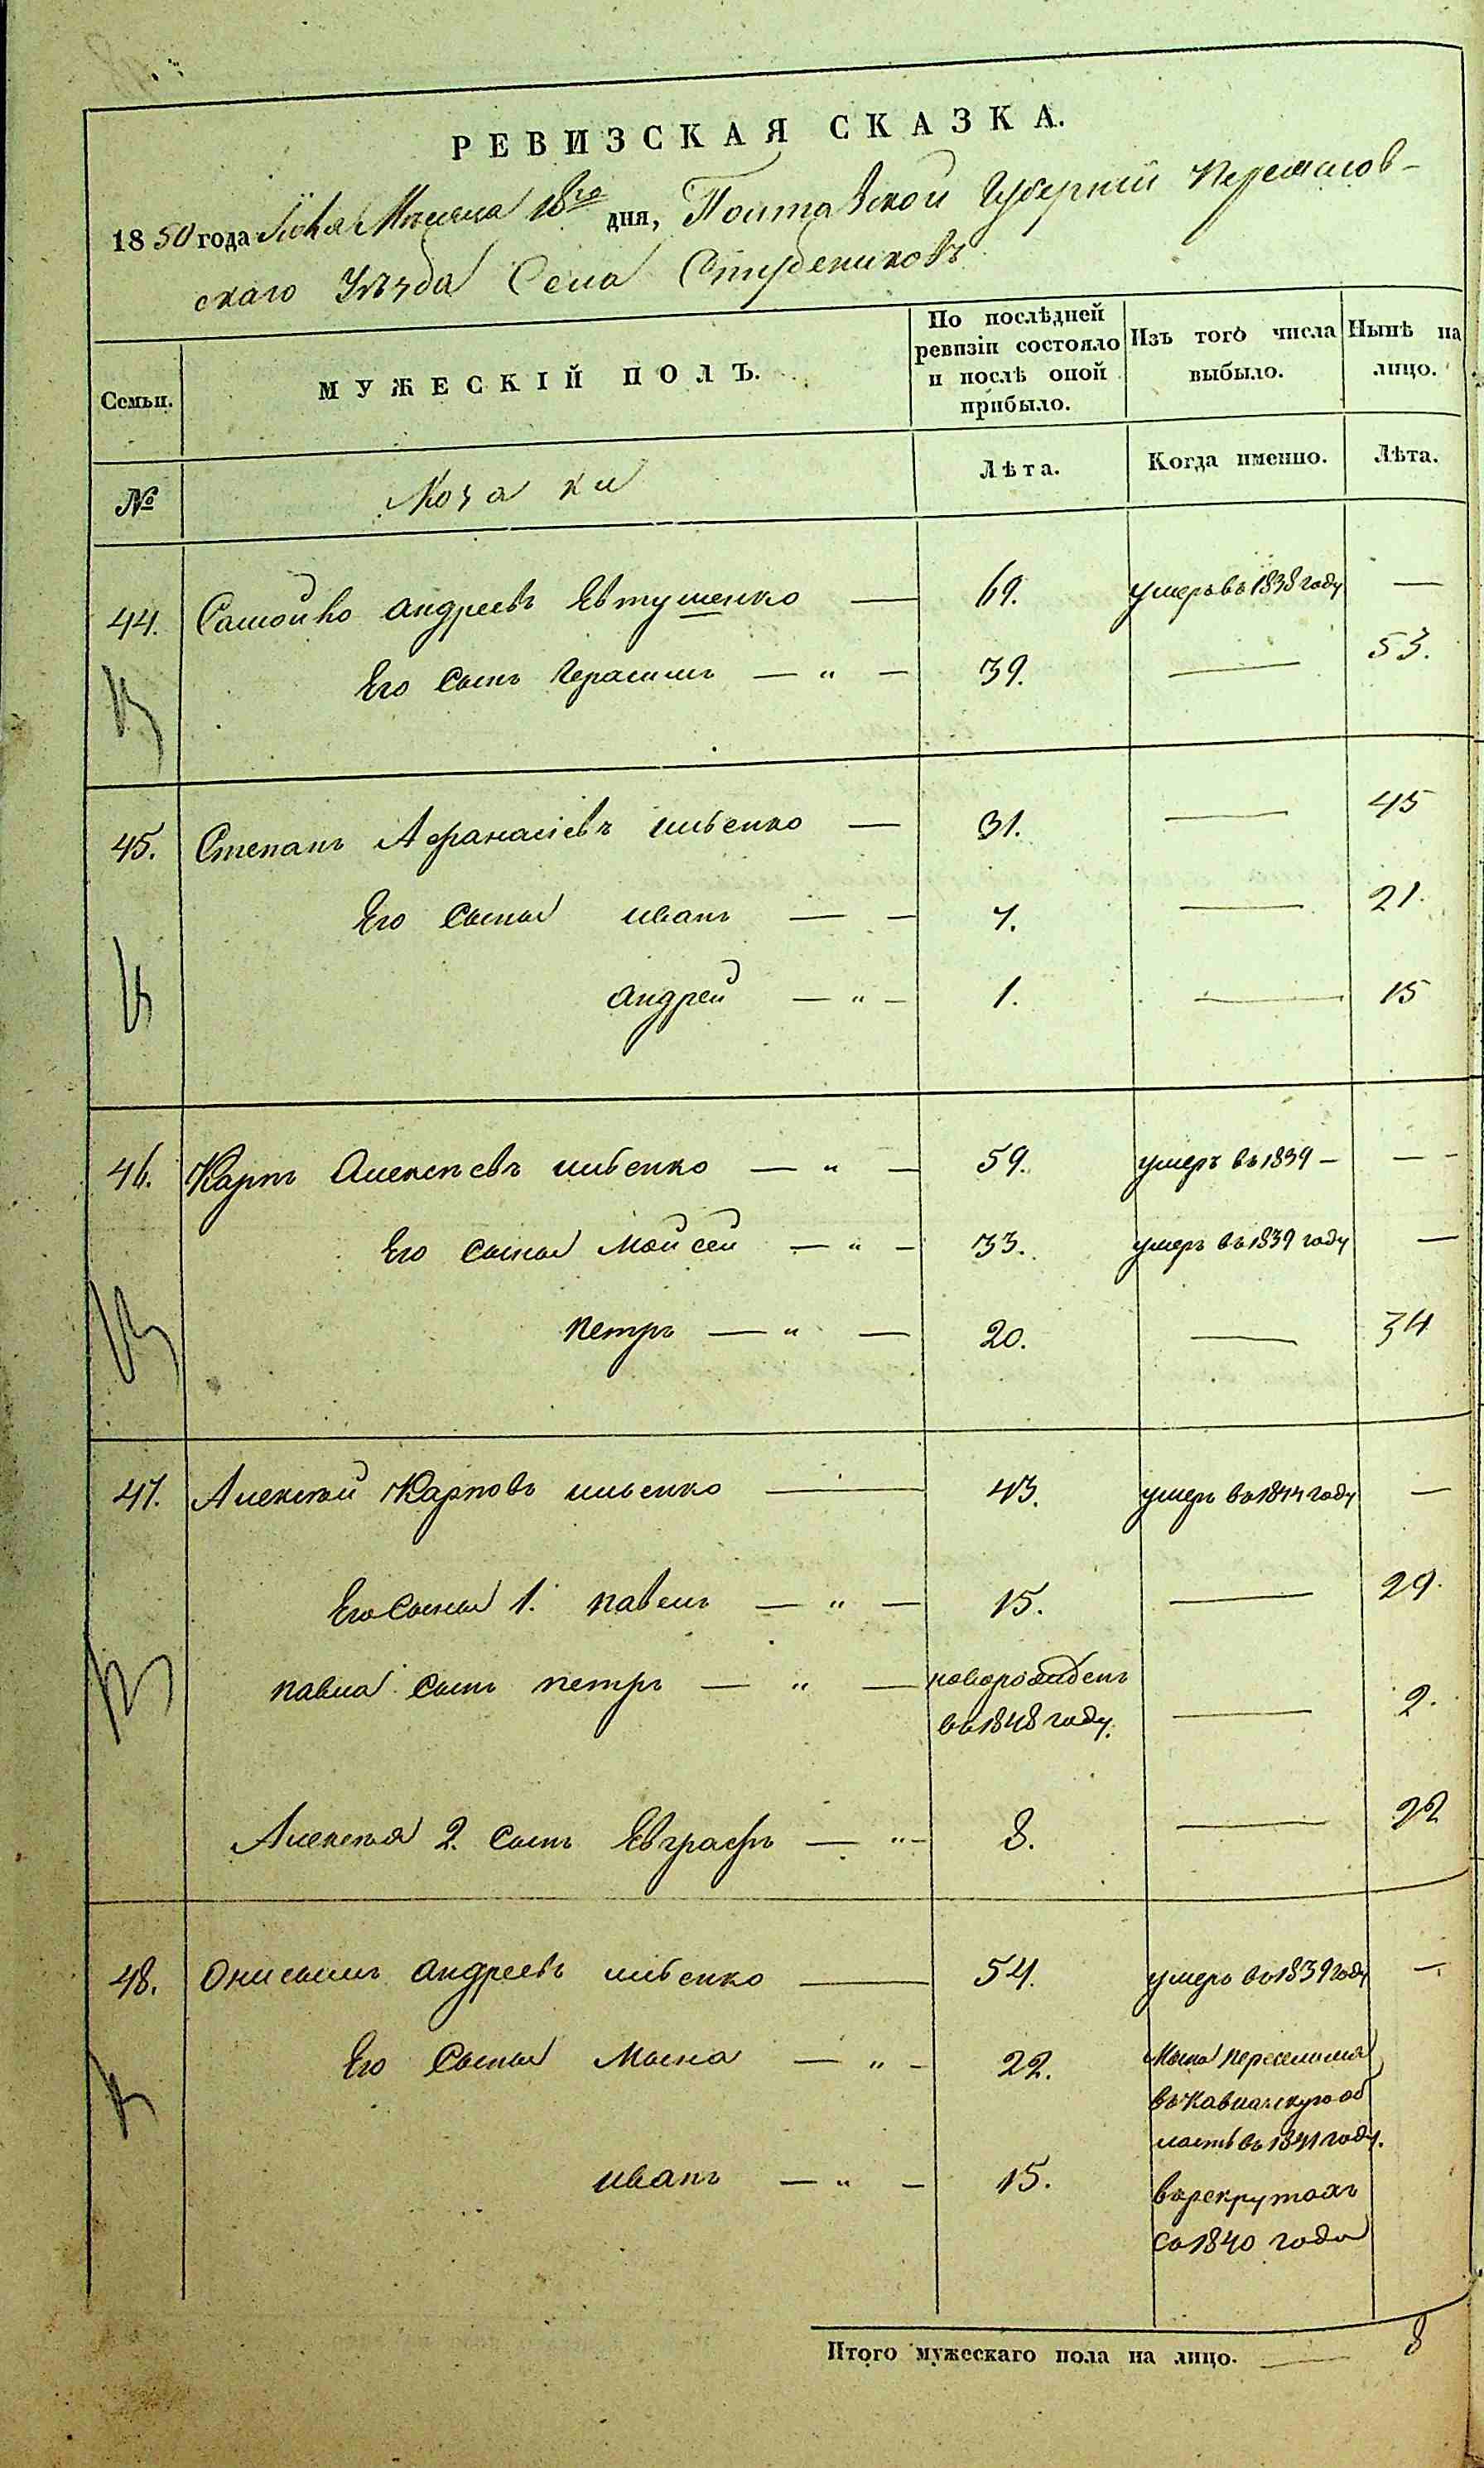 РЕВИЗСКАЯ СКАЗКА.
1850 года Іюня Месяца 18го дня, Полтавской Губерніи Переяслов-
скаго Уѣзда Села Студениковъ
Семьи. МУЖЕСКІЙ ПОЛЪ. По послѣдней ревизіи состояло и послѣ оной прибыло. Изъ того числа выбыло. Нынѣ на лицо.
№ Козаки Лѣта. Когда именно. Лѣта.
44. Самойло Андреевъ Евтушенко — 69. умеръ въ 1838 году —
Его сынъ Герасимъ — „ — 39. — 53.
45. Степанъ Афанасіевъ ильенко — 31. — 45
Его сыны иванъ — — 7. — 21.
андрей — „ — 1. — 15
46. Карпъ Алексѣевъ ильенко — „ — 59. умеръ въ 1839 — — -
Его сыны Мойсей — „ — 33. умеръ въ 1839 году —
петръ — „ — 20. — 34
47. Алексѣй Карповъ ильенко — 43. умеръ въ 1844 году —
Его сыны 1. павелъ — „ — 15. — 29.
павла сынъ петръ — „ — новорожденъ
въ 1848 году. — 2.
Алексѣя 2. сынъ Евграфъ — „ - 8. — 22
48. Онисимъ андреевъ ильенко — 54. умеръ въ 1839 году —
Его сыны Мына — „ - 22. Мына переселился
въ Кавказскую об
ласть въ 1841 году.
иванъ — „ — 15. въ рекрутахъ
со 1840 года
Итого мужескаго пола на лицо. — 8